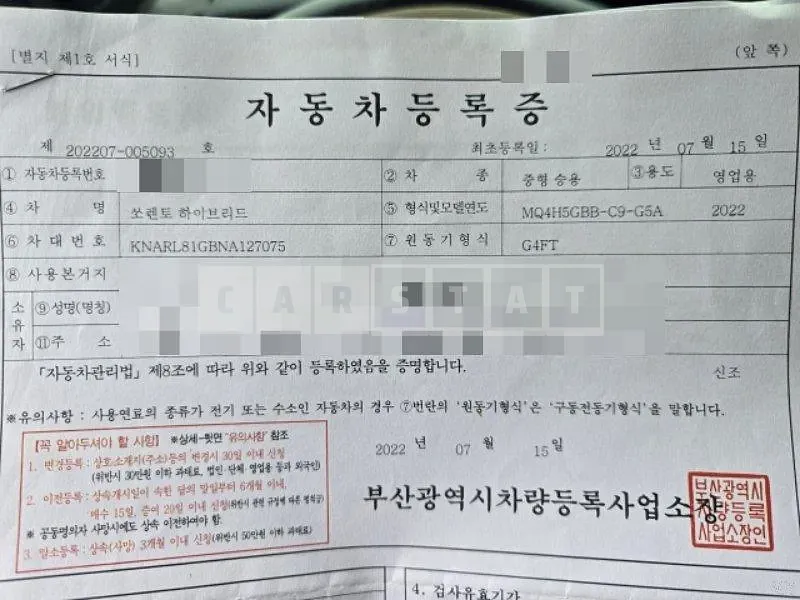 [별지 제1호 서식]
(앞 쪽)
자동차등록증
제 202207-005093 호
최초등록일 : 2022 년 07 월 15 일
① 자동차등록번호
② 차 종 중형 승용
③용도 영업용
④ 차 명 쏘렌토 하이브리드
⑤ 형식및모델연도 MQ4H5GBB-C9-G5A 2022
⑥ 차대번호 KNARL81GBNA127075
⑦ 원동기형식 G4FT
⑧ 사용본거지
소유자
⑨성명(명칭)
⑪주 소
CARSTAT
「자동차관리법」 제8조에 따라 위와 같이 등록하였음을 증명합니다.
신조
※유의사항 : 사용연료의 종류가 전기 또는 수소인 자동차의 경우 ⑦번란의 '원동기형식'은 '구동전동기형식'을 말합니다.
[꼭 알아두셔야 할 사항] ※상세-뒷면 "유의사항" 참조
1. 변경등록 : 상호소재지(주소)등의 변경시 30일 이내 신청
(위반시 30만원 이하 과태료, 법인·단체·영업용 등과 외국인)
2. 이전등록 : 상속개시일이 속한 달의 말일부터 6개월 이내,
매수 15일, 증여 20일 이내 신청(위반시 관련 규정에 따른 범칙금)
※ 공동명의자 사망시에도 상속 이전하여야 함.
3. 말소등록 : 상속(사망) 3개월 이내 신청(위반시 50만원 이하 과태료)
2022 년 07 월 15 일
부산광역시차량등록사업소장
부산광역시
차량등록
사업소장인
4. 검사유효기간